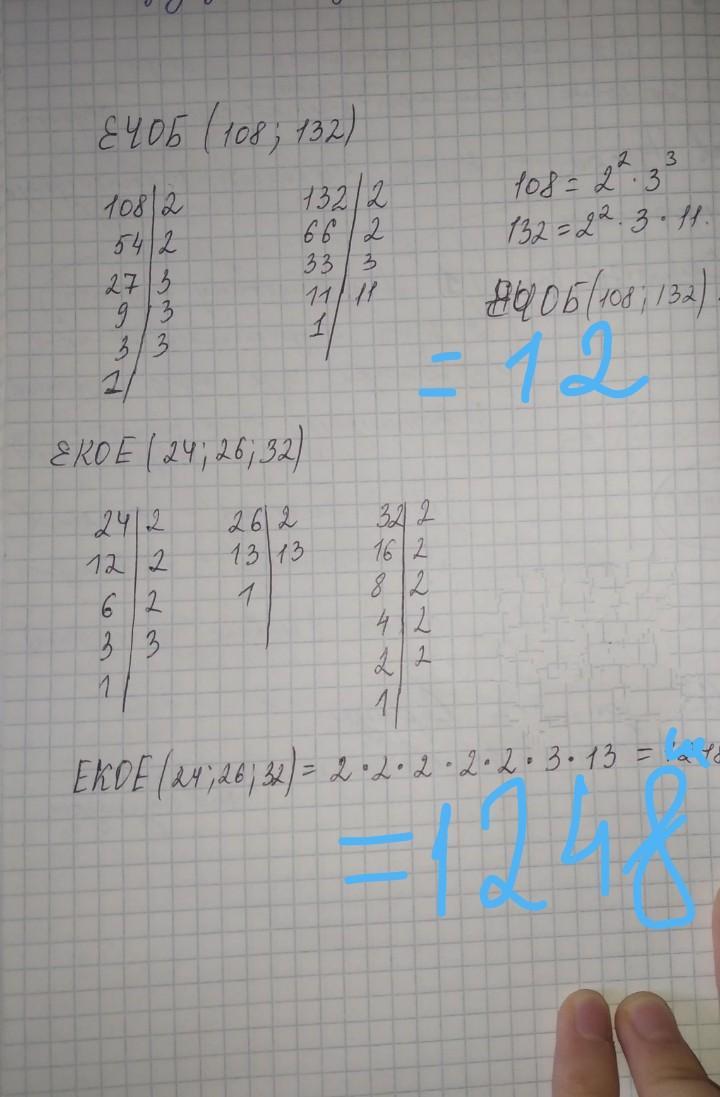 ЕЧОБ (108; 132)
108 | 2
54 | 2
27 | 3
9 | 3
3 | 3
1 |
132 | 2
66 | 2
33 | 3
11 | 11
1 |
108 = 2² · 3³
132 = 2² · 3 · 11.
ЕЧОБ (108; 132)
= 12
ЕКОЕ (24; 26; 32)
24 | 2
12 | 2
6 | 2
3 | 3
1 |
26 | 2
13 | 13
1 |
32 | 2
16 | 2
8 | 2
4 | 2
2 | 2
1 |
ЕКОЕ (24; 26; 32) = 2 · 2 · 2 · 2 · 2 · 3 · 13 =
= 1248